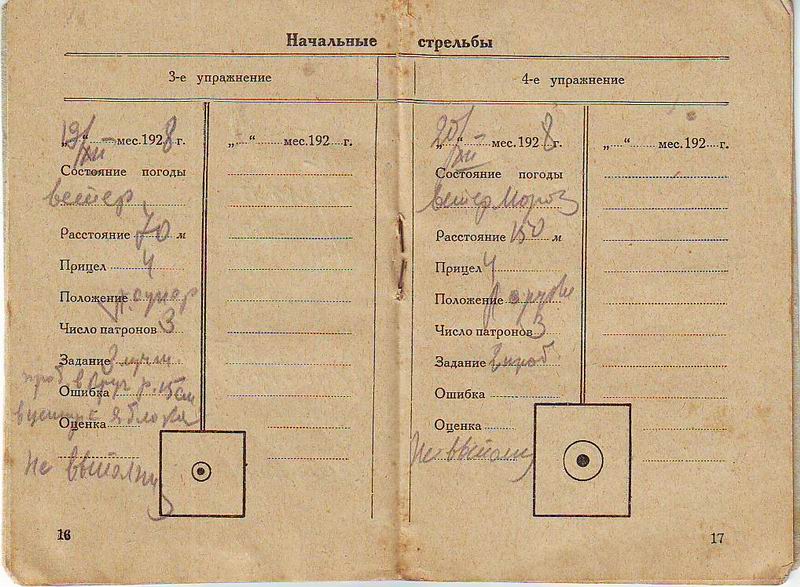 Начальные стрельбы
3-е упражнение
„19/XII“ мес. 1928 г.
Состояние погоды
ветер
Расстояние 70 м
Прицел 4
Положение
Число патронов 3
Задание
Ошибка
в центр с яблока
Оценка
Не выполнил
„......“ ........ мес. 192.... г.
16
4-е упражнение
„20/XII“ мес. 1928 г.
Состояние погоды
ветер Мороз
Расстояние 150 м
Прицел 4
Положение
Число патронов 3
Задание 2 проб.
Ошибка
Оценка
Не выполн
„......“ ........ мес. 192.... г.
17